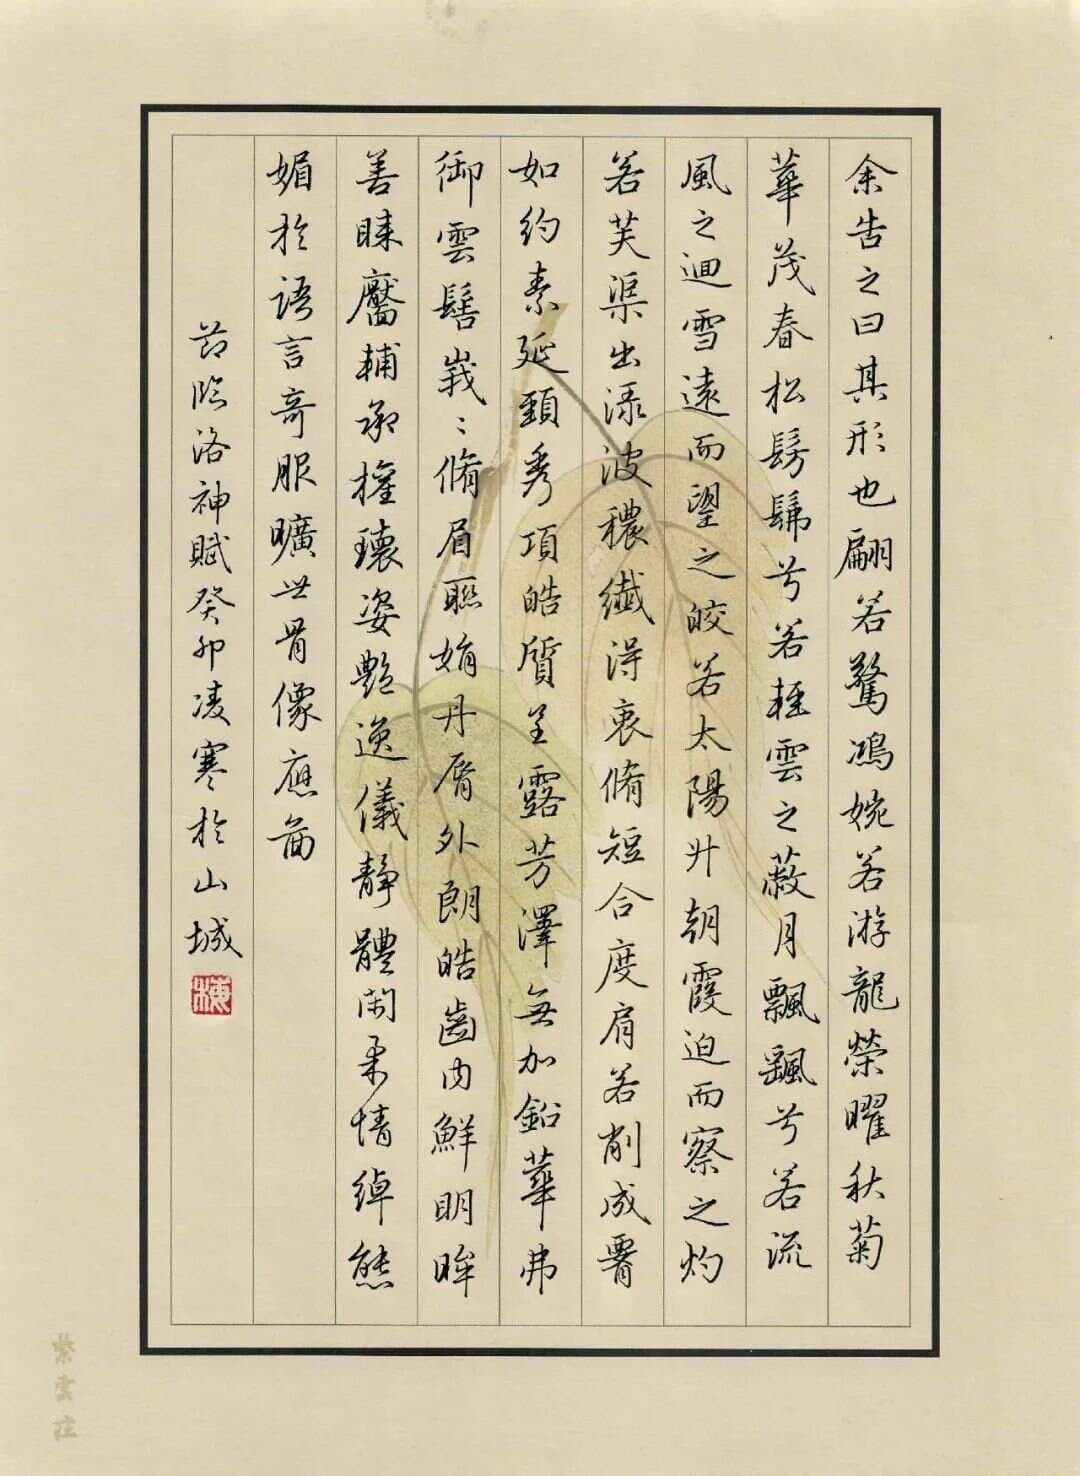 余告之曰其形也翩若驚鴻婉若游龍榮曜秋菊
華茂春松髣髴兮若輕雲之蔽月飄颻兮若流
風之迴雪遠而望之皎若太陽升朝霞迫而察之灼
若芙渠出淥波穠纖得衷脩短合度肩若削成署
如約素延頸秀項皓質呈露芳澤無加鉛華弗
御雲髻峩〻脩眉聯娟丹脣外朗皓齒內鮮明眸
善睞靨輔承權瓌姿艷逸儀靜體閑柔情綽態
媚於語言奇服曠世骨像應圖
節臨洛神賦癸卯凌寒於山城
梅
紫雲莊